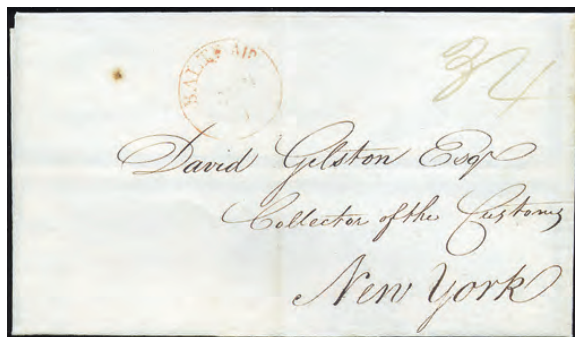 BALT. MD
34
David Gelston Esqr
Collector of the Customs
New York